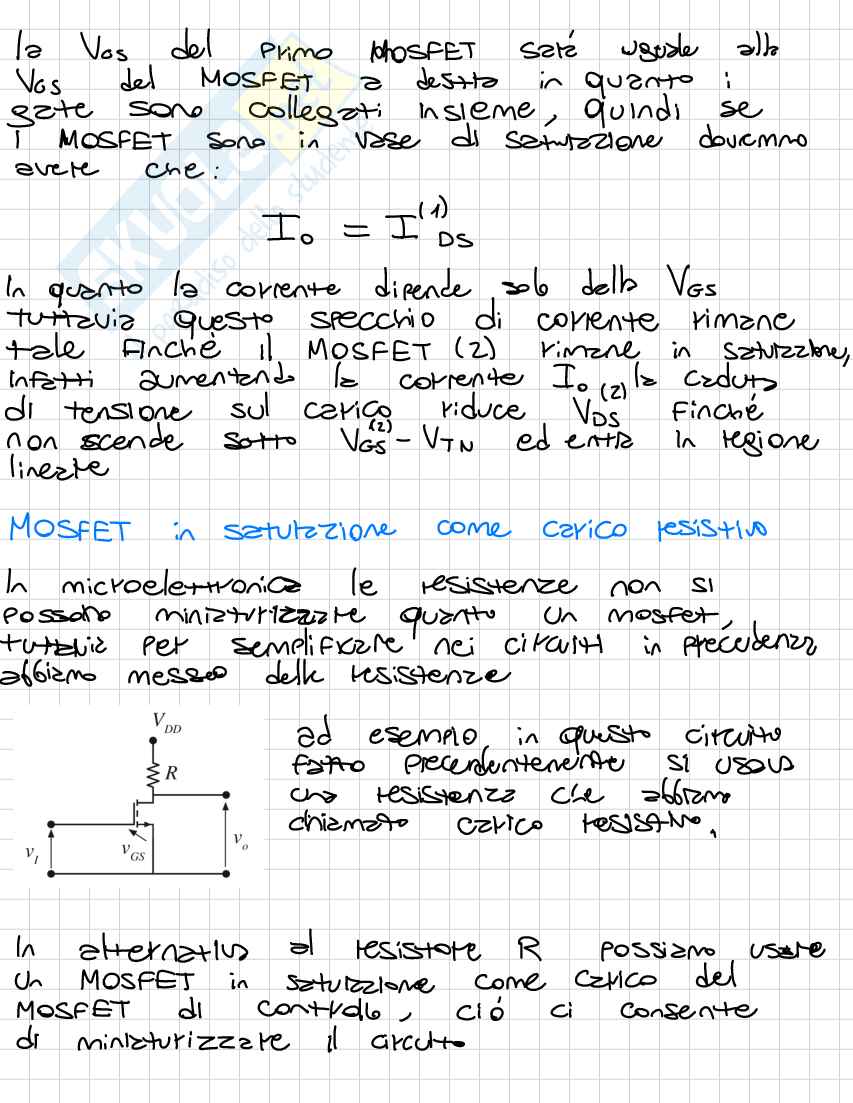 la VGS del primo MOSFET sará uguale alla
VGS del MOSFET a destra in quanto i
gate sono collegati insieme, quindi se
i MOSFET sono in vase di saturazione dovremmo
avere che:
I₀ = I⁽¹⁾DS
In quanto la corrente dipende solo dalla VGS
tuttavia questo specchio di corrente rimane
tale finché il MOSFET (2) rimane in saturazione,
infatti aumentando la corrente I₀ la caduta
di tensione sul carico riduce VDS⁽²⁾ finché
non scende sotto VGS⁽²⁾ - VTN ed entra in regione
lineare
MOSFET in saturazione come carico resistivo
In microelettronica le resistenze non si
possono miniaturizzare quanto un mosfet,
tuttavia per semplificare nei circuiti in precedenza
abbiamo messo delle resistenze
VDD
R
vI
vGS
vo
ad esempio in questo circuito
fatto precedentemente si usava
una resistenza che abbiamo
chiamato carico resistivo.
In alternativa al resistore R possiamo usare
un MOSFET in saturazione come carico del
MOSFET di controllo, ció ci consente
di miniaturizzare il circuito
SKUOLA.net
paradiso dello studente